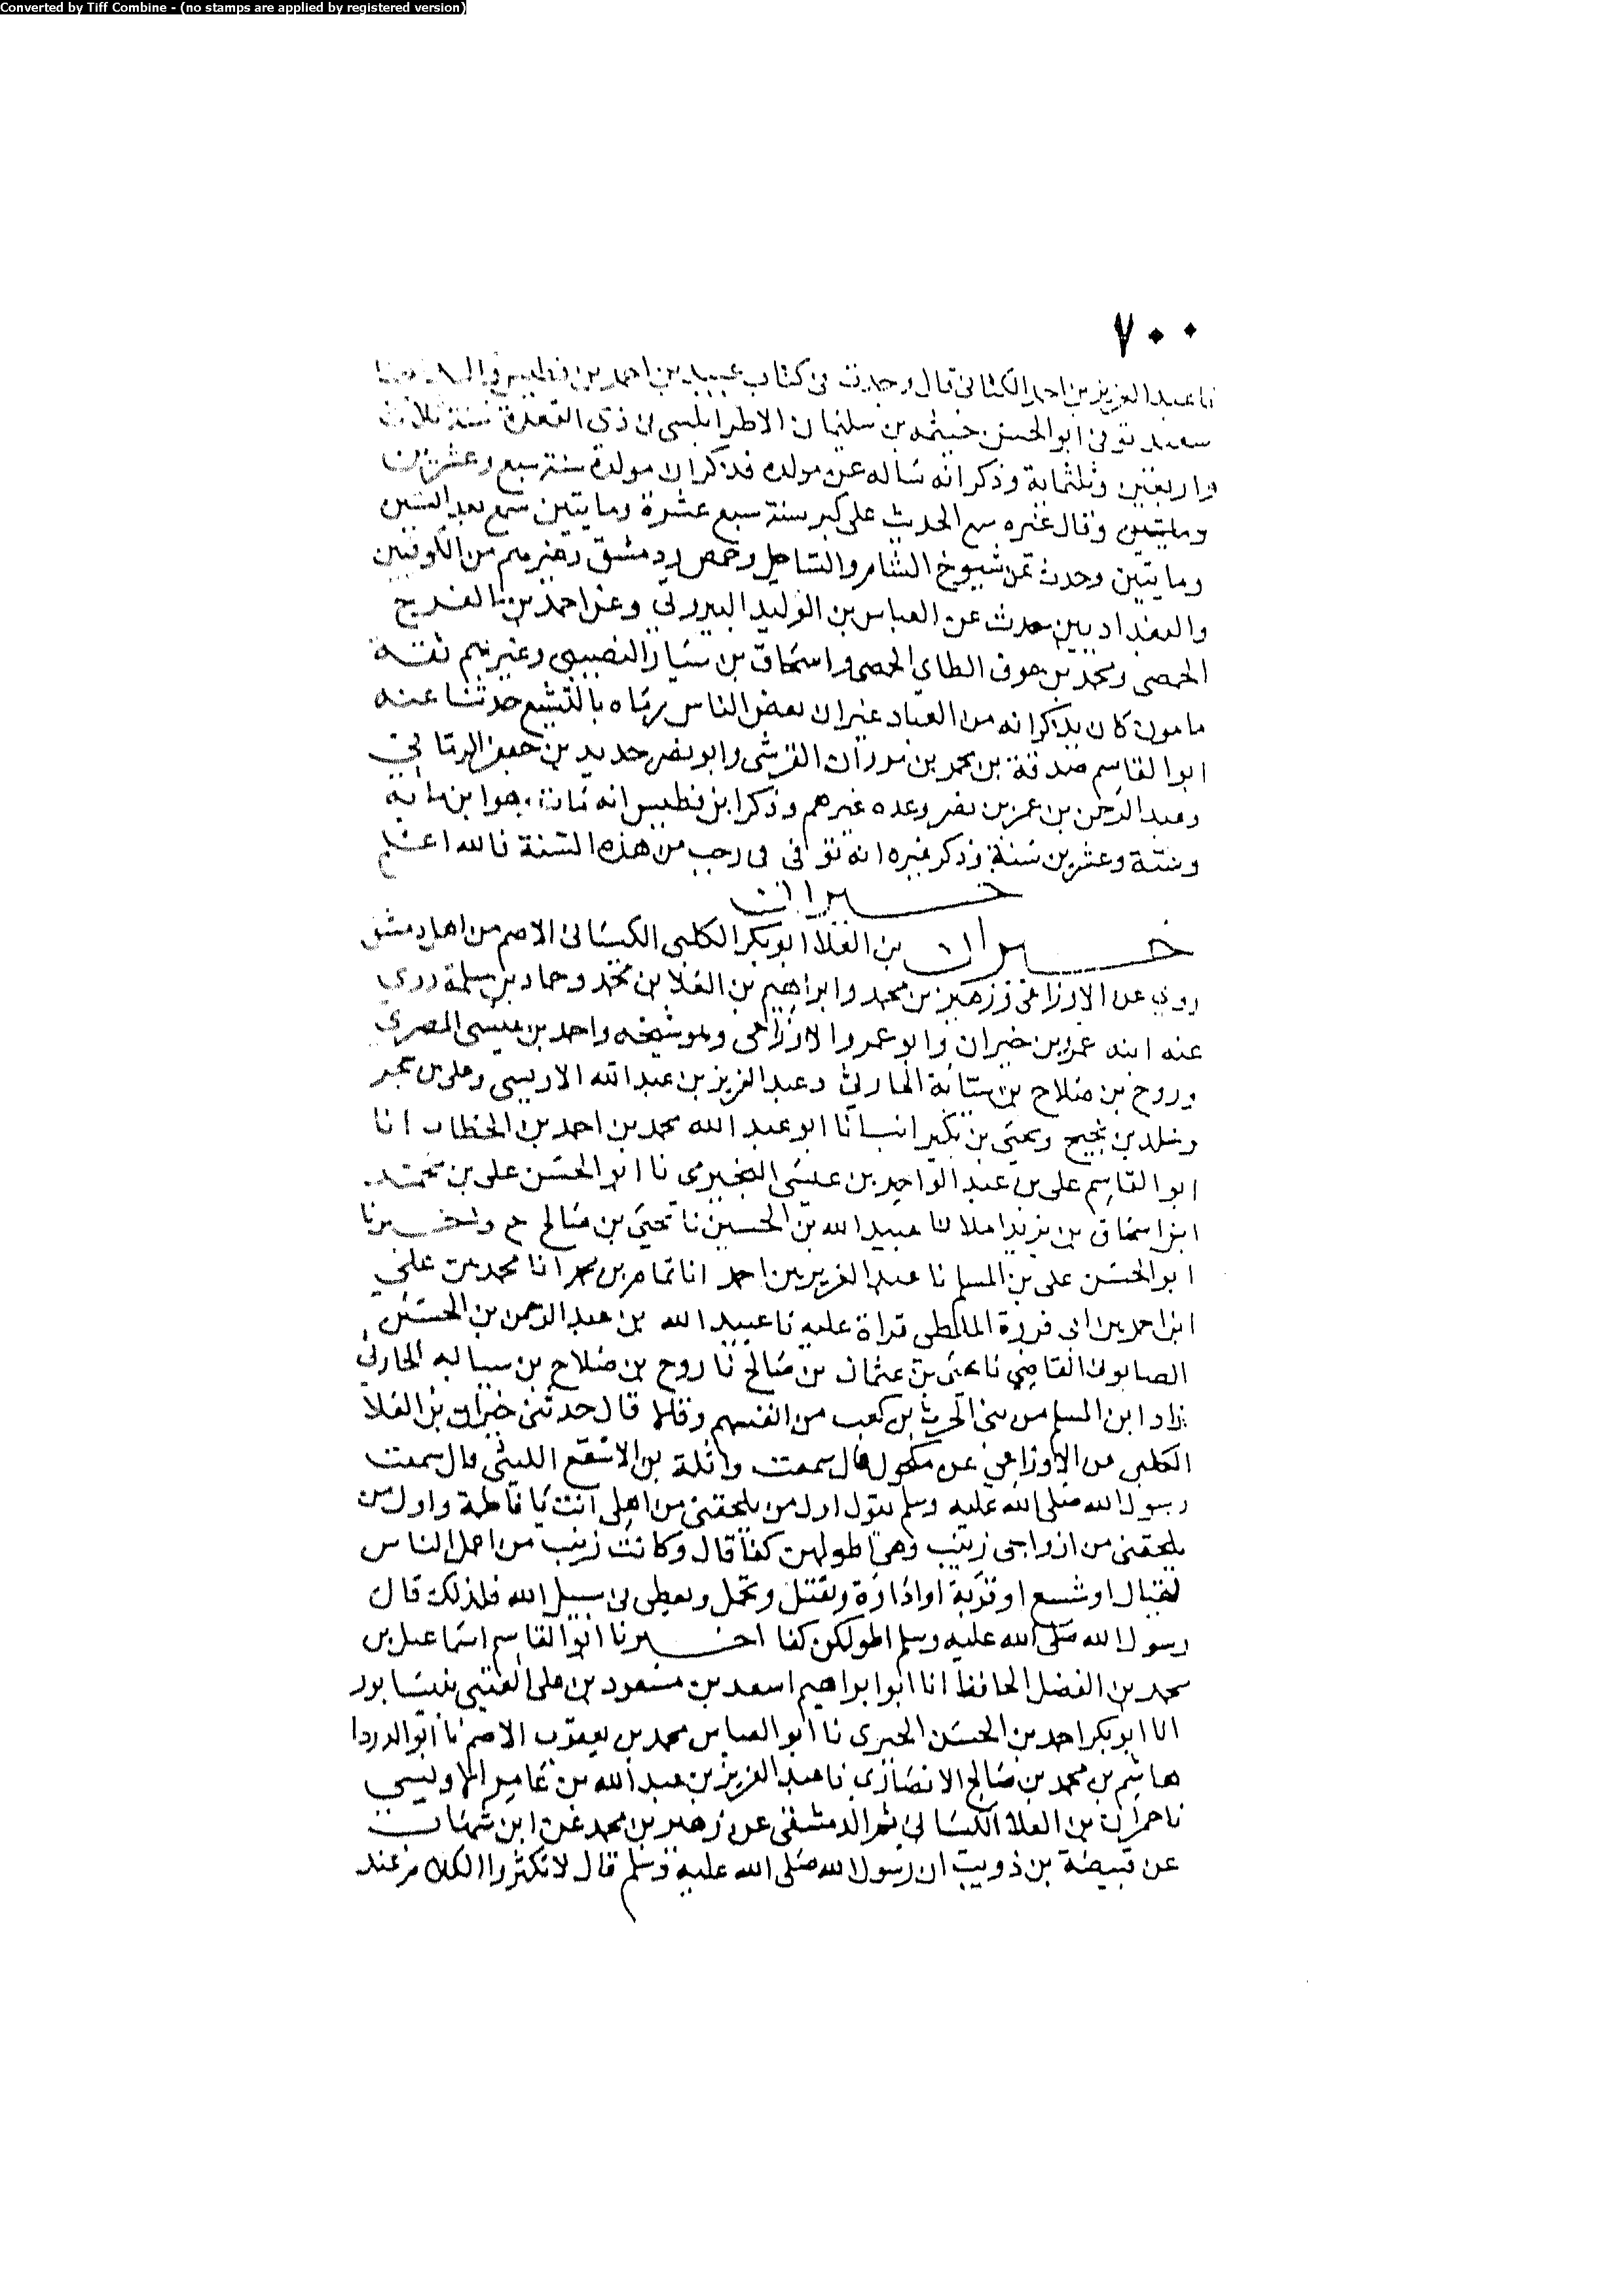 Converted by Tiff Combine - (no stamps are applied by registered version)
٧٠٠
نا عبد العزيز بن احمد الكتاني قال وجدت في كتاب عبيد بن احمد بن فطيس
سعيد توفي ابو الحسن خيثمه بن سليمان الاطرابلسي في ذي القعدة سنة ثلاث
واربعين وثلثماية وذكر انه ساله عن مولده فذكر ان مولده سنة سبع وعشرين
ومايتين وقال غيره سمع الحديث على كبر سنة سبع عشرة ومايتين سمع بعد الستين
ومايتين وحدث عن شيوخ الشام والساحل وحمص ودمشق وغيرهم من الكوفيين
والبغداديين حدث عن العباس بن الوليد البيروتي وعن احمد بن الفرج
الحمصي ومحمد بن عوف الطاي الحمصي واسحاق بن سيار النصيبي وغيرهم ثقة
مامون كان يذكر انه من العباد غير ان بعض الناس رماه بالتشيع حدثنا عنه
ابو القاسم صدقة بن محمد بن مروان القرشي وابو نصر حديد بن جعفر الرماني
وعبد الرحمن بن عمر بن نصر وعده غيرهم وذكر ابن فطيس انه مات وهو ابن ماية
وستة وعشرين سنة وذكر غيره انه توافي في رجب من هذه السنة فالله اعلم
خيران
خيران بن العلا ابو بكر الكلبي الكيساني الاصم من اهل دمشق
روى عن الاوزاعي وزهير بن محمد وابراهيم بن العلا بن محمد وحماد بن سلمة روى
عنه ابنه عمر بن خيران وابو عمرو الاوزاعي وهو شيخه واحمد بن عيسى المصري
وروح بن صلاح بن سيابة الحارثي وعبد العزيز بن عبد الله الاويسي وعلي بن حجر
وخلد بن نجيح ويحيى بن بكير انبانا ابو عبد الله محمد بن احمد بن الخطاب انا
ابو القاسم علي بن عبد الواحد بن عيسى النجيرمي نا ابو الحسن علي بن محمد
ابن اسحاق بن يزيد املا نا عبيد الله بن الحسين نا يحيى بن صالح ح واخبرنا
ابو الحسن علي بن المسلم نا عبد العزيز بن احمد انا تمام بن محمد انا محمد بن علي
ابن احمد بن ابي فروة الملطي قراة عليه نا عبيد الله بن عبد الرحمن بن الحسين
الصابوني القاضي نا يحيى بن عثمان بن صالح نا روح بن صلاح بن سيابه الحارثي
زاد ابن المسلم من بني الحرث بن كعب من انفسهم وقالا قال حدثني خيران بن العلا
الكلبي عن الاوزاعي عن مكحول قال سمعت واثلة بن الاسقع الليثي قال سمعت
رسول الله صلى الله عليه وسلم يقول اول من يلحقني من اهلي انت يا فاطمة واول من
يلحقني من ازواجي زينب وهي اطولهن كفا قال وكانت زينب من اعمل الناس
لقبال او شسع او قربة او اداوة وتفتل وتحمل وتعطي في سبيل الله فلذلك قال
رسول الله صلى الله عليه وسلم اطولكن كفا اخبرنا ابو القاسم اسماعيل بن
محمد بن الفضل الحافظ انا ابو ابراهيم اسعد بن مسعود بن علي العتبي بنيسابور
انا ابو بكر احمد بن الحسن الحيري نا ابو العباس محمد بن يعقوب الاصم نا ابو الدردا
هاشم بن محمد بن صالح الانصاري نا عبد العزيز بن عبد الله بن عامر الاويسي
نا خيران بن العلا الكيساني ثم الدمشقي عن زهير بن محمد عن ابن شهاب
عن قبيصة بن ذويب ان رسول الله صلى الله عليه وسلم قال لا تكثروا الكلام عند